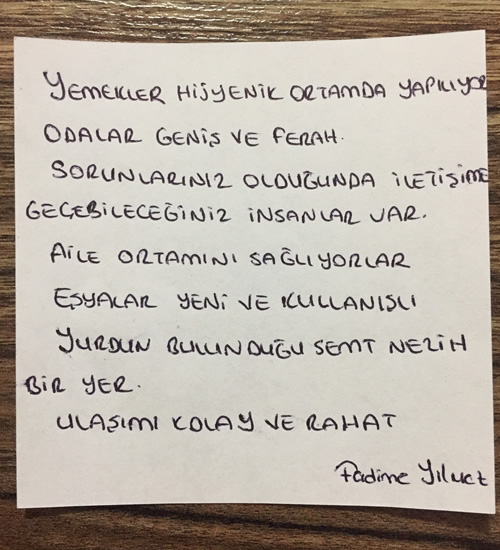 YEMEKLER HİJYENİK ORTAMDA YAPILIYOR
ODALAR GENİŞ VE FERAH.
SORUNLARINIZ OLDUĞUNDA İLETİŞİME
GEÇEBİLECEĞİNİZ İNSANLAR VAR.
AİLE ORTAMINI SAĞLIYORLAR
EŞYALAR YENİ VE KULLANIŞLI
YURDUN BULUNDUĞU SEMT NEZİH
BİR YER.
ULAŞIMI KOLAY VE RAHAT
Fadime